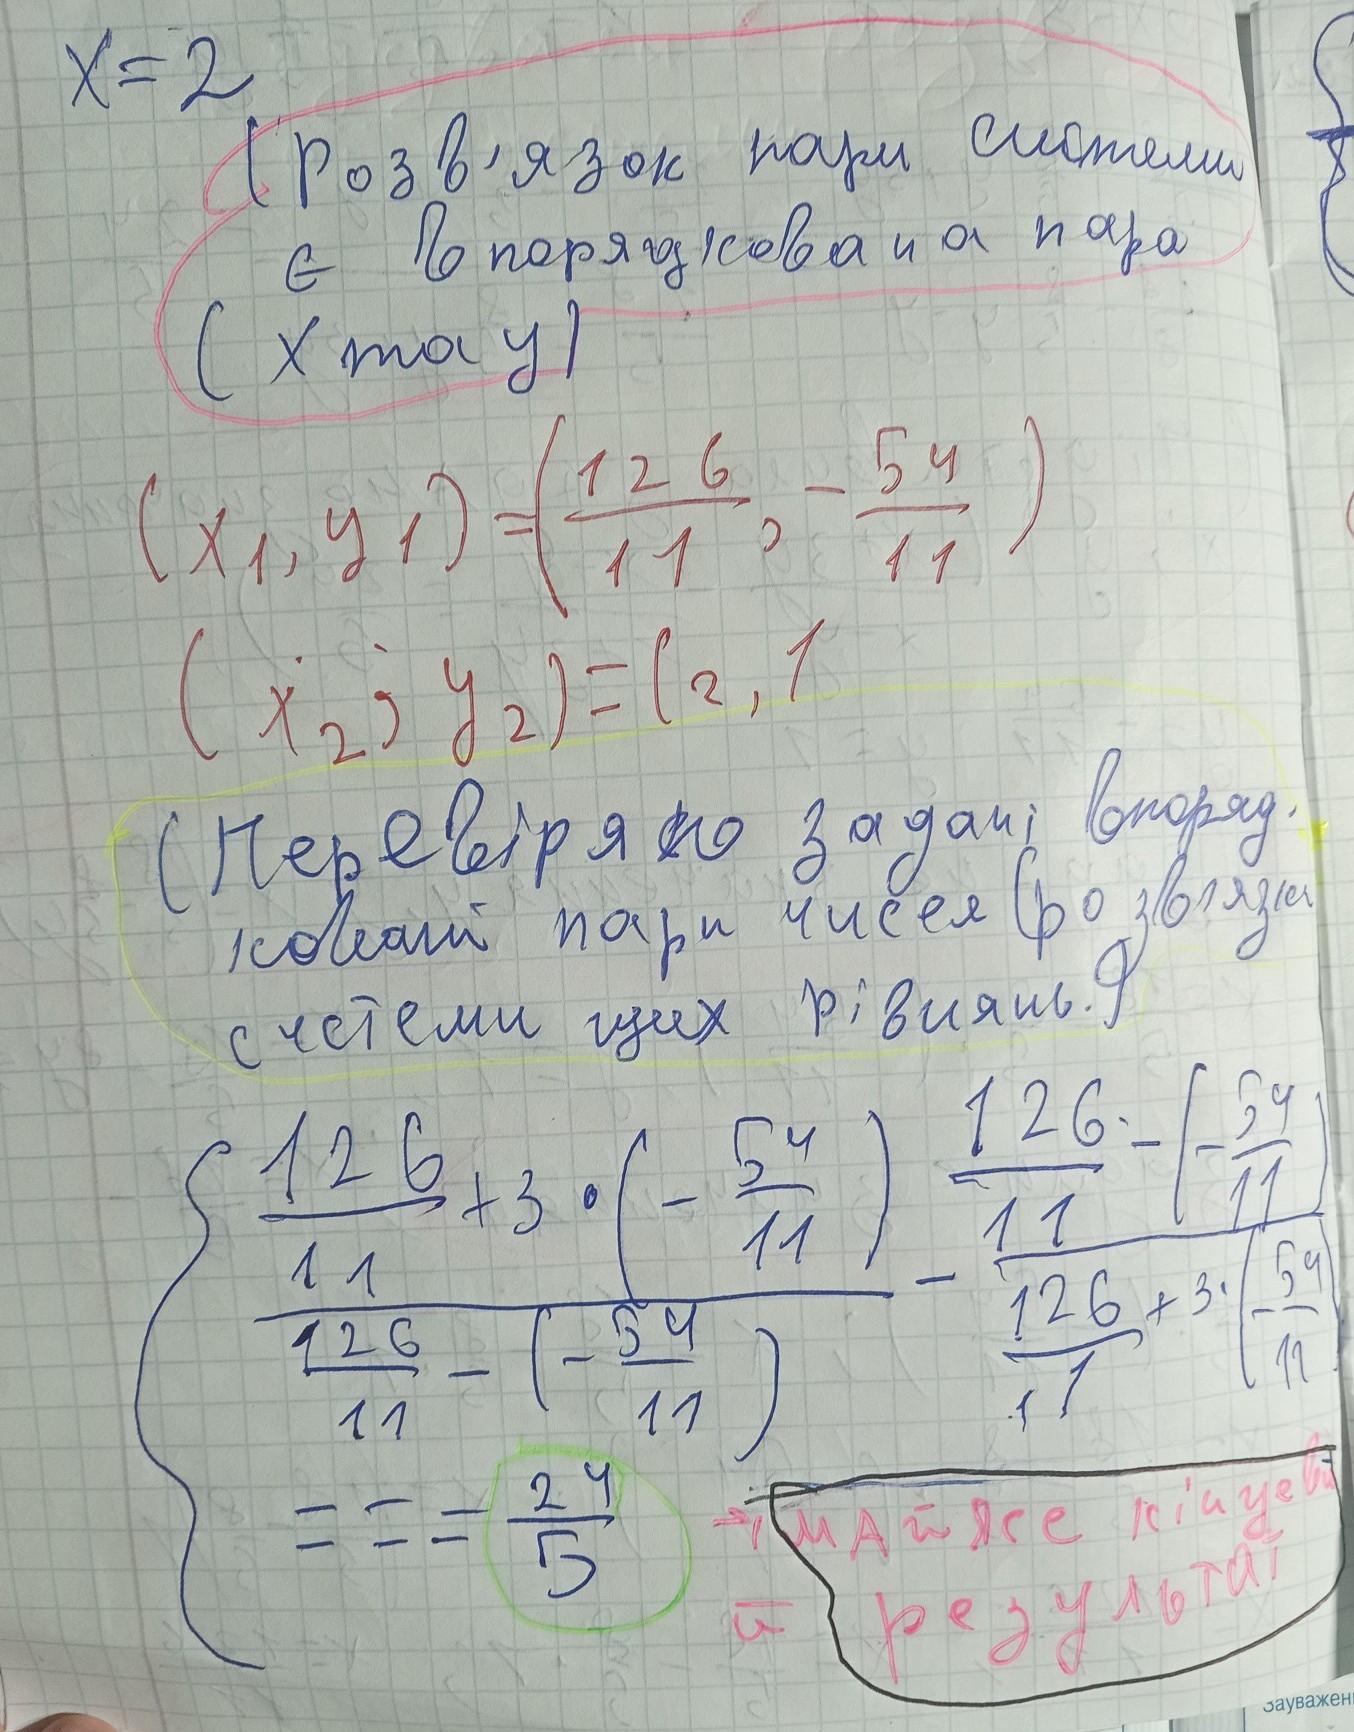 x=2
(Розв'язок пари системи
є впорядкована пара
(x та y)
(x₁, y₁) = (126/11, - 54/11)
(x₂; y₂) = (2, 1
(Перевіряю задані впоряд.
ковані пари чисел (розв'язки
системи цих рівнянь.)
{ (126/11 + 3 • (- 54/11)) / (126/11 - (- 54/11)) - (126/11 - (- 54/11)) / (126/11 + 3 · (- 54/11))
= = = 24/5 → майже кінцеви
й результат
Зауважен